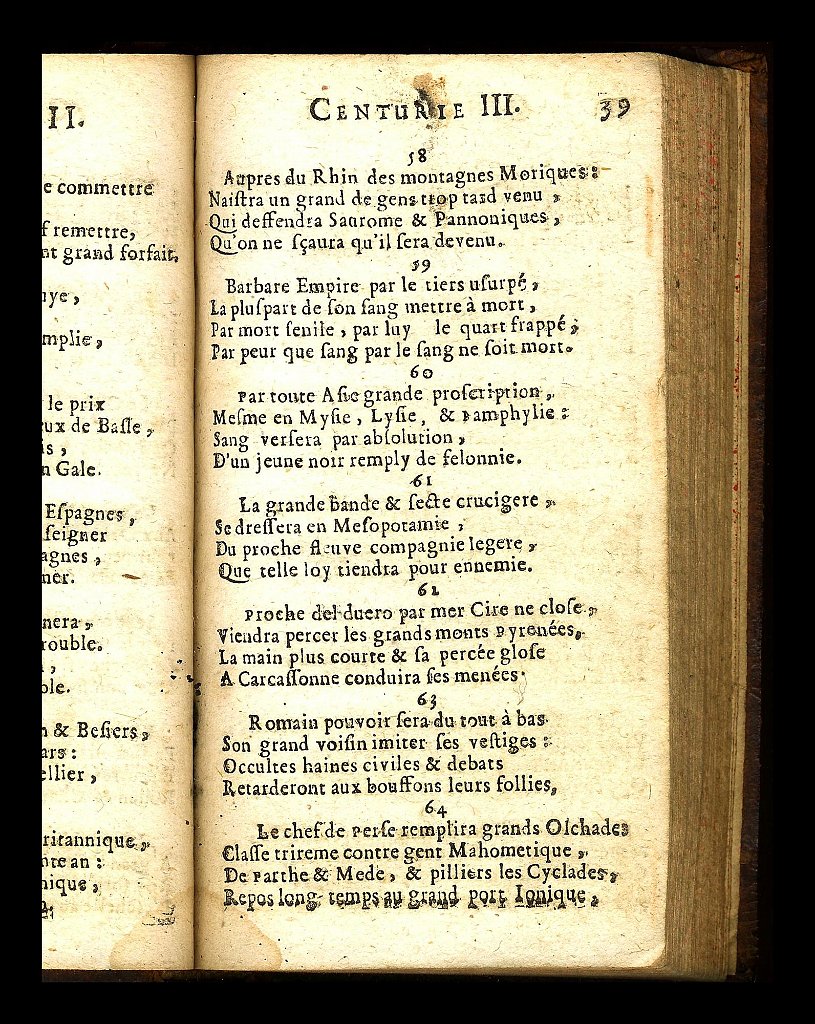 II.
e commettre
f remettre,
nt grand forfait,
uye,
mplie,
le prix
eux de Basle,
is,
n Gale.
Espagnes,
seigner
agnes,
ner.
nera,
rouble.
,
ble.
n & Besiers,
ars:
ellier,
ritannique,
nte an:
nique,
CENTURIE III. 39
58
Aupres du Rhin des montagnes Moriques:
Naiſtra un grand de gens trop tard venu,
Qui deffendra Saurome & Pannoniques,
Qu'on ne ſçaura qu'il ſera devenu.
59
Barbare Empire par le tiers uſurpé,
La pluſpart de ſon ſang mettre à mort,
Par mort ſenile, par luy le quart frappé;
Par peur que ſang par le ſang ne ſoit mort.
60
Par toute Aſie grande proſcription,
Meſme en Myſie, Lyſie, & Pamphylie:
Sang verſera par abſolution,
D'un jeune noir remply de felonnie.
61
La grande bande & ſecte crucigere,
Se dreſſera en Meſopotamie,
Du proche fleuve compagnie legere,
Que telle loy tiendra pour ennemie.
62
Proche del duero par mer Cire ne cloſe,
Viendra percer les grands monts Pyrenées,
La main plus courte & ſa percée gloſe
A Carcaſſonne conduira ſes menées.
63
Romain pouvoir ſera du tout à bas.
Son grand voiſin imiter ſes veſtiges:
Occultes haines civiles & debats
Retarderont aux bouffons leurs follies,
64
Le chef de Perſe remplira grands Olchades
Claſſe trireme contre gent Mahometique,
De Parthe & Mede, & pilliers les Cyclades,
Repos long temps au grand port Ionique,